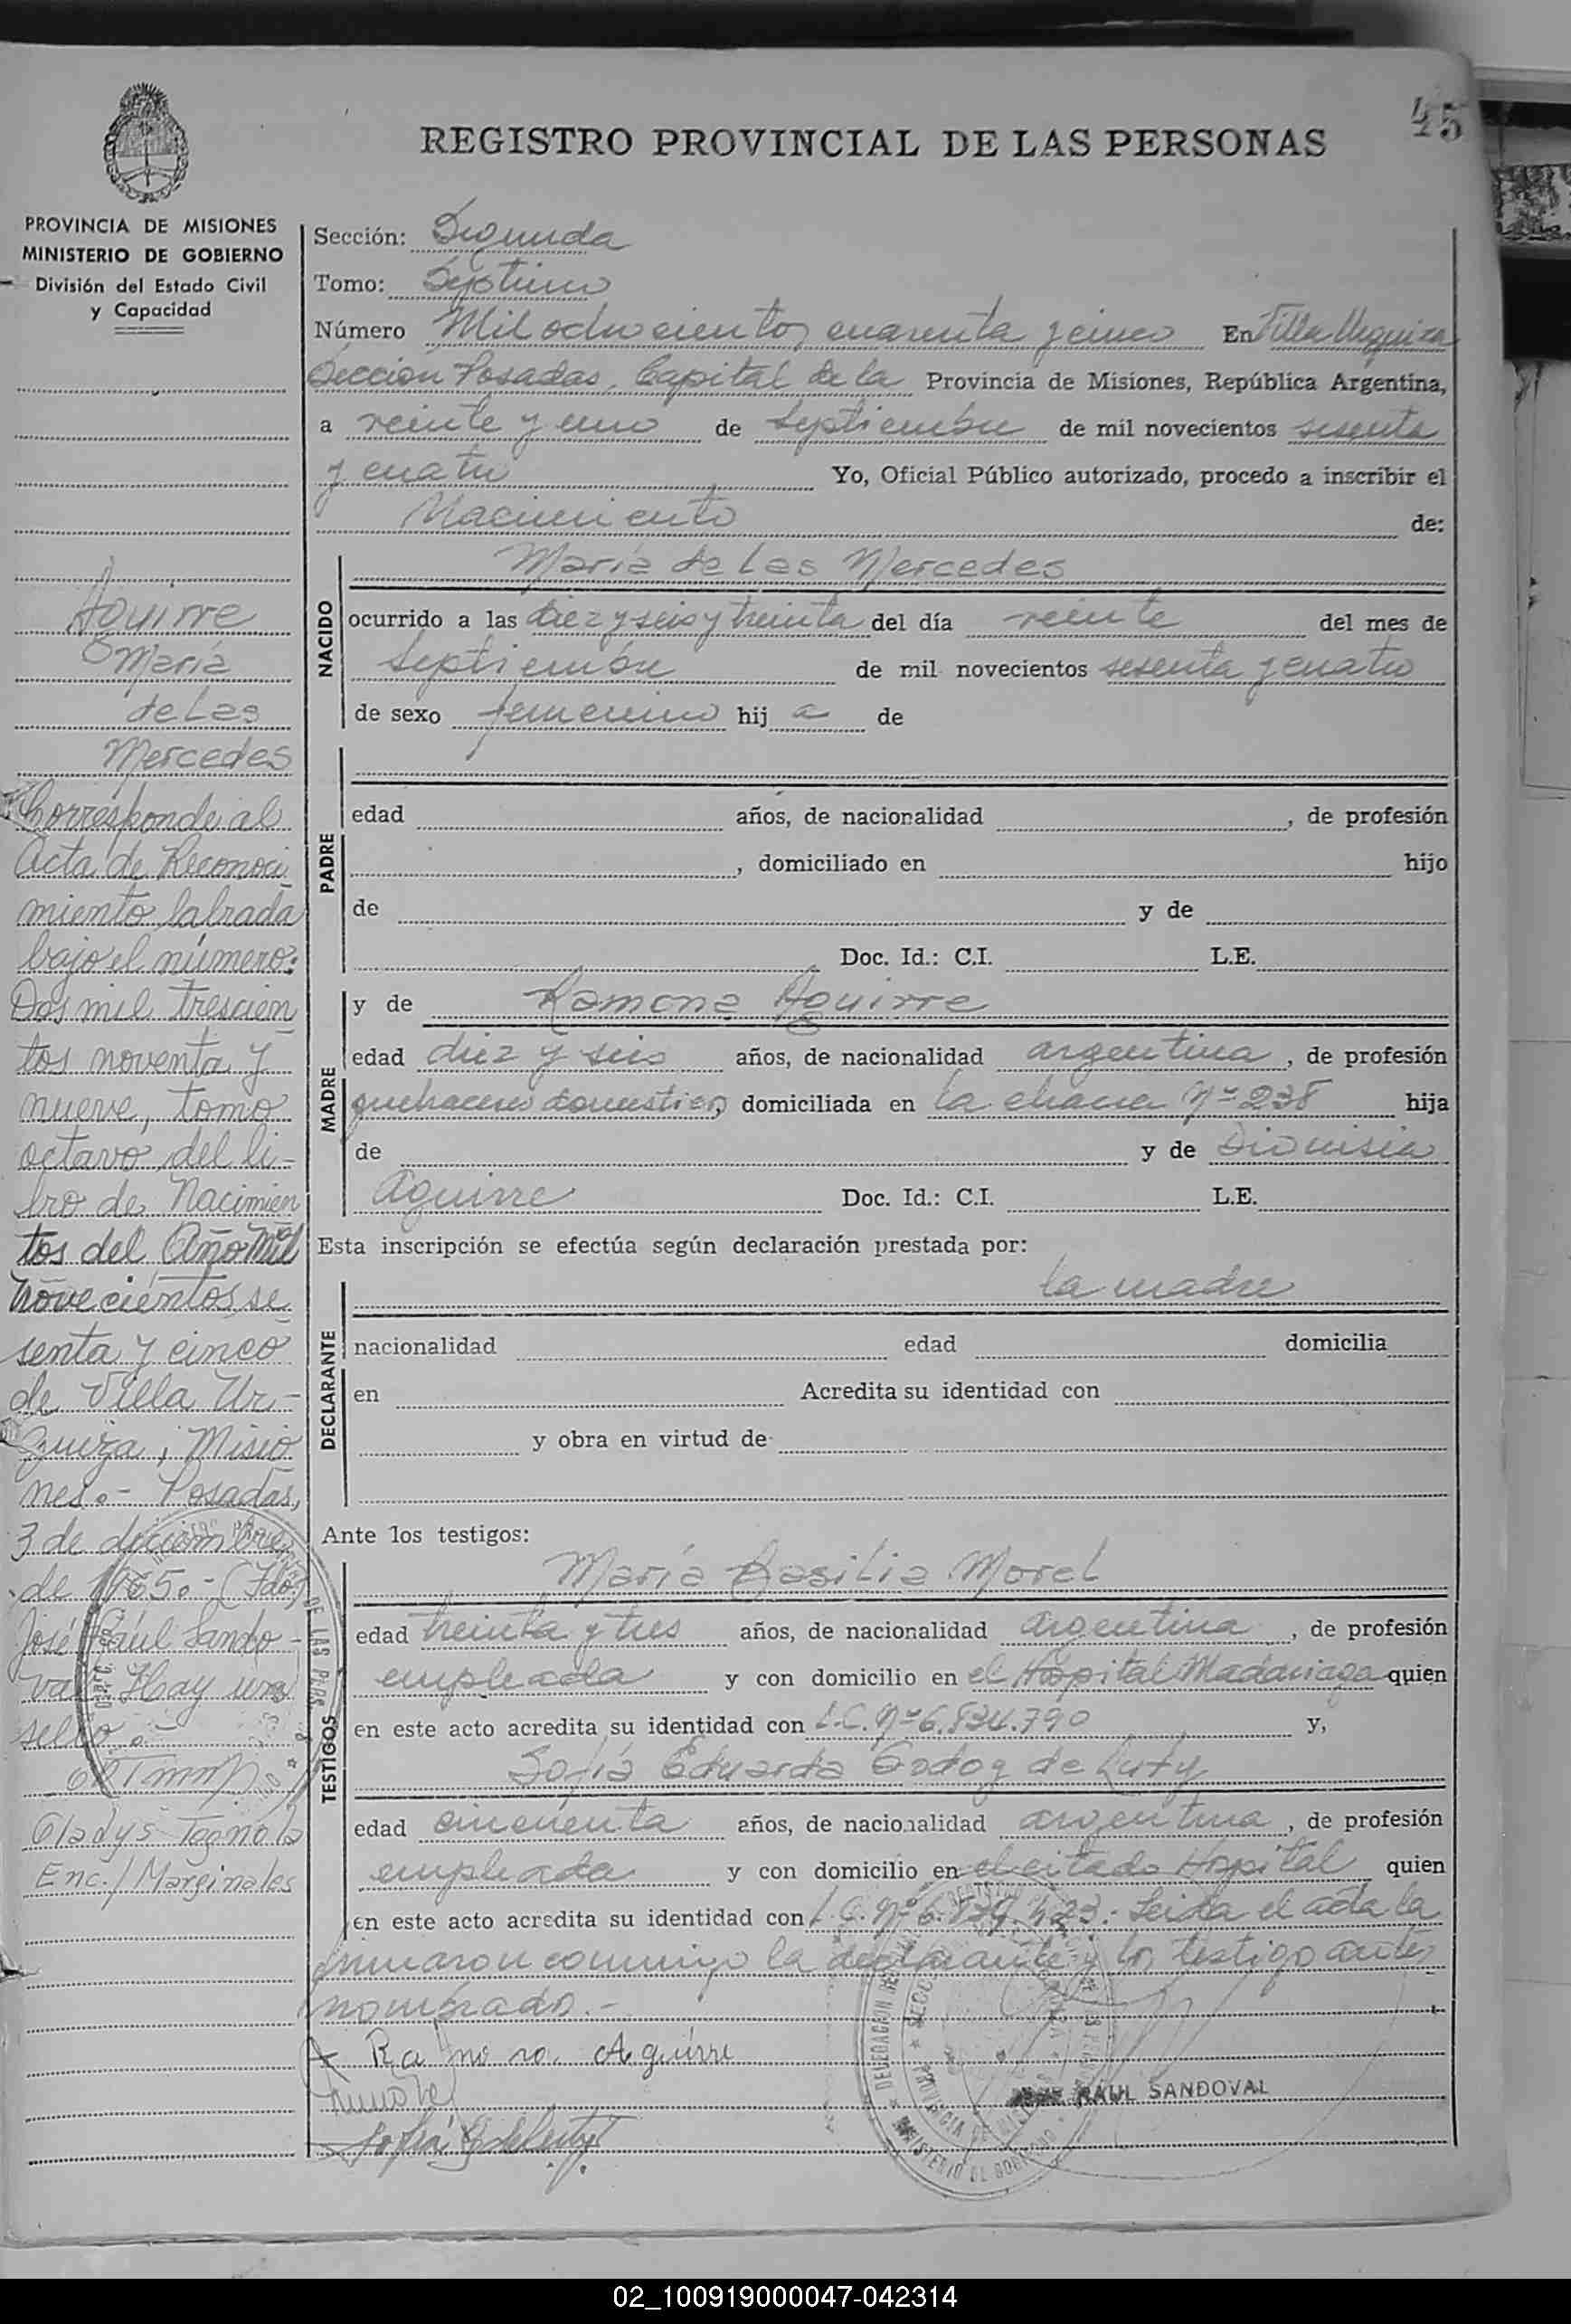 45
REGISTRO PROVINCIAL DE LAS PERSONAS
PROVINCIA DE MISIONES
MINISTERIO DE GOBIERNO
División del Estado Civil
y Capacidad
Aguirre
María
de Las
Mercedes
Corresponde al
Acta de Reconoci
miento labrada
bajo el número:
Dos mil trescien
tos noventa y
nueve, tomo
octavo del li-
bro de Nacimien
tos del Año Mil
novecientos se
senta y cinco
de Villa Ur-
quiza, Misio
nes.- Posadas,
3 de diciembre
de 1965.- (Fdo)
José Raúl Sando-
val Hay un
sello.-
Gladys Tagnola
Enc./Marginales
Sección: Segunda
Tomo: Septimo
Número Mil ochocientos cuarenta y cinco En Villa Urquiza
Sección Posadas, Capital de la Provincia de Misiones, República Argentina,
a veinte y uno de Septiembre de mil novecientos sesenta
y cuatro Yo, Oficial Público autorizado, procedo a inscribir el
Nacimiento de:
NACIDO
María de Las Mercedes
ocurrido a las diez y seis y treinta del día veinte del mes de
Septiembre de mil novecientos sesenta y cuatro
de sexo femenino hij a de
PADRE
edad años, de nacionalidad , de profesión
, domiciliado en hijo
de y de
Doc. Id.: C.I. L.E.
MADRE
y de Ramona Aguirre
edad diez y seis años, de nacionalidad argentina, de profesión
quehaceres domesticos, domiciliada en la chacra Nº 238 hija
de y de Dionisia
Aguirre Doc. Id.: C.I. L.E.
Esta inscripción se efectúa según declaración prestada por:
DECLARANTE
la madre
nacionalidad edad domicilia
en Acredita su identidad con
y obra en virtud de
Ante los testigos:
TESTIGOS
María Basilia Morel
edad treinta y tres años, de nacionalidad argentina, de profesión
empleada y con domicilio en el Hospital Madariaga quien
en este acto acredita su identidad con L.C. Nº 6.834.790 y,
Sofía Eduarda Godoy de Luty
edad cincuenta años, de nacionalidad argentina, de profesión
empleada y con domicilio en el citado Hospital quien
en este acto acredita su identidad con L.C. Nº 6.839.423.- Leida el acta la
firmaron conmigo la declarante y los testigo antes
nombrado.-
Ramona Aguirre
RAUL SANDOVAL
02_100919000047-042314